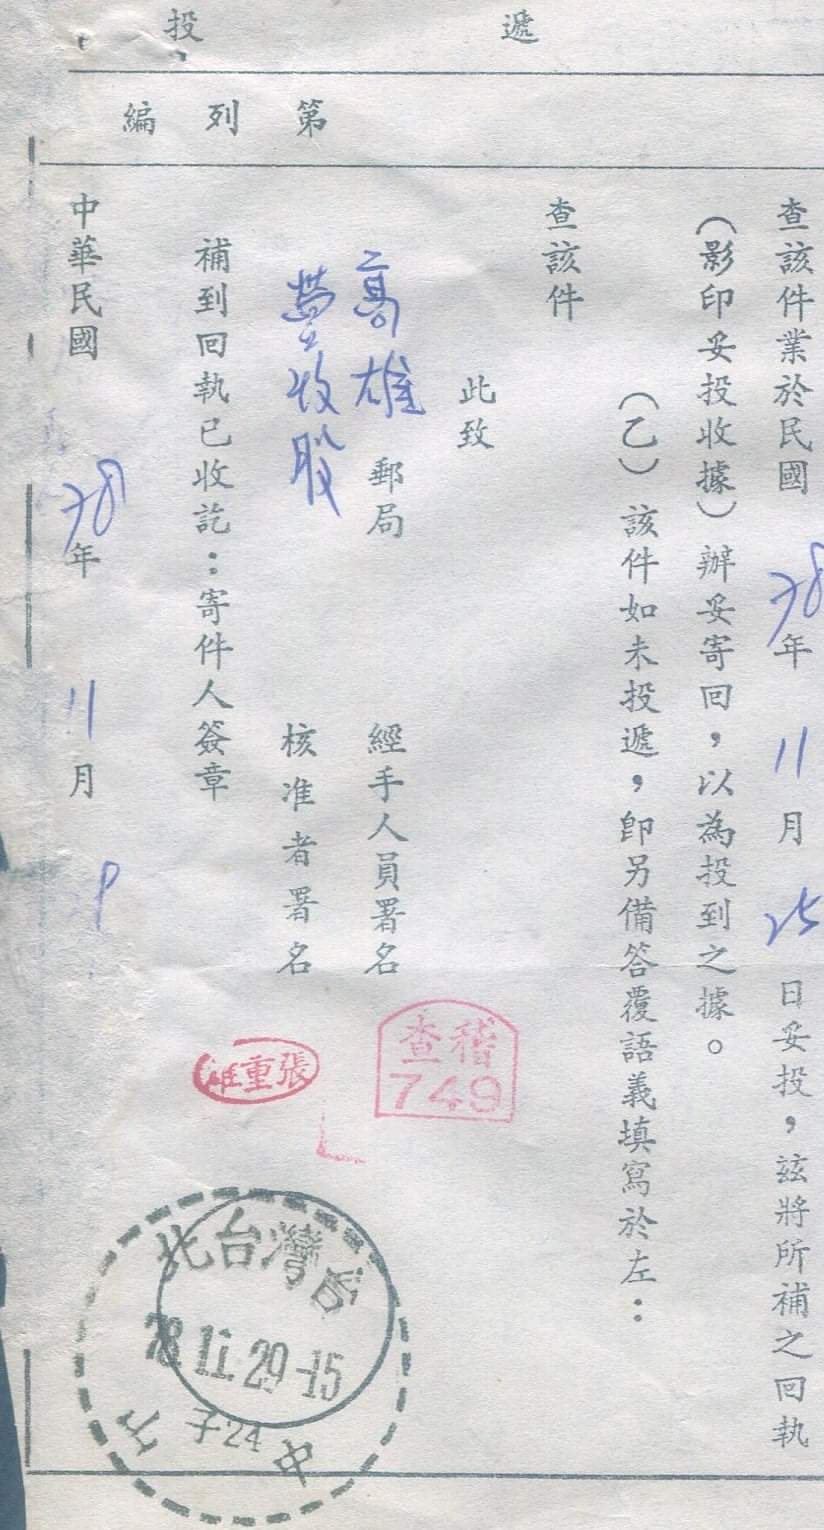 遞投
第列編
查該件業於民國78年11月25日妥投，茲將所補之回執
（影印妥投收據）辦妥寄回，以為投到之據。
（乙）該件如未投遞，卽另備答覆語義填寫於左：
查該件
此致
高雄郵局
營收股
經手人員署名
稽查
749
核准者署名
張重雄
補到回執已收訖：寄件人簽章
中華民國78年11月
台灣台北
78.11.29-15
子24